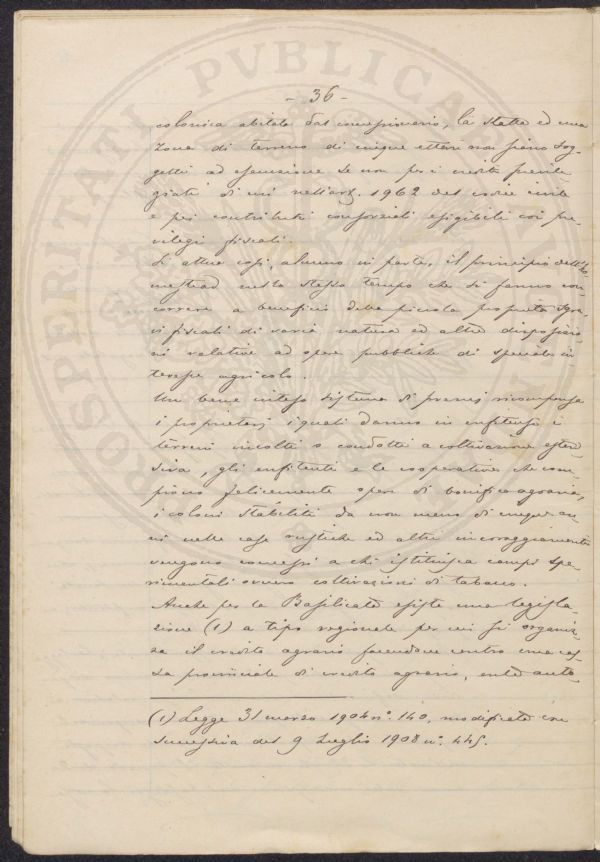 - 36 -
colonica abitata dal concessionario, la stalla ed una
zona di terreno di cinque ettari non siano sog-
getti ad esecuzione se non per i crediti privile-
giati di cui nell'art. 1962 del codice civile
e pei contributi consorziali esigibili coi pri-
vilegi fiscali.
Si attua così, almeno in parte, il principio dell'ho-
mestead nello stesso tempo che si fanno con-
correre a beneficio della piccola proprietà sgra-
vi fiscali di varia natura ed altre disposizio-
ni relative ad opere pubbliche di speciale in-
teresse agricolo.
Un bene inteso sistema di premi ricompensa
i proprietari i quali danno in enfiteusi i
terreni incolti o condotti a coltivazione esten-
siva, gli enfiteuti e le cooperative che com-
piono felicemente opere di bonifica agraria,
i coloni stabiliti da non meno di cinque an-
ni nelle case rustiche ed altri incoraggiamenti
vengono concessi a chi istituisca campi spe-
rimentali ovvero coltivazioni di tabacco.
Anche per la Basilicata esiste una legisla-
zione (1) a tipo regionale per cui si organiz-
za il credito agrario facendone centro una cas-
sa provinciale di credito agrario, ente auto-
(1) Legge 31 marzo 1904 n°. 140, modificata con
successiva del 9 Luglio 1908 n°. 445.
PROSPERITATI PUBLICAE